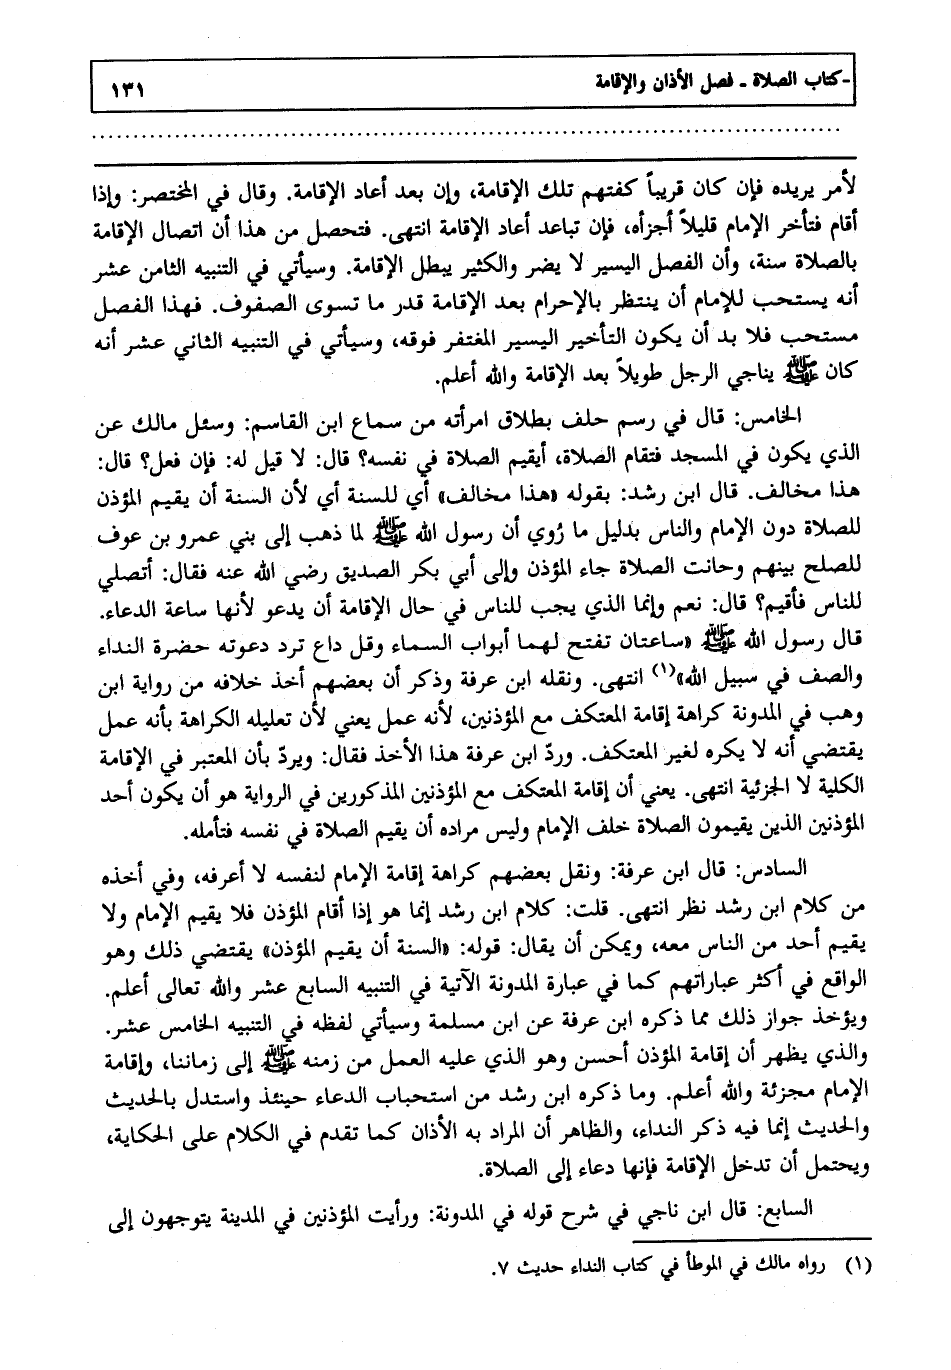 -كتاب الصلاة - فصل الأذان والإقامة
١٣١
لأمر يريده فإن كان قريباً كفتهم تلك الإقامة، وإن بعد أعاد الإقامة. وقال في المختصر: وإذا
أقام فتأخر الإمام قليلاً أجزأه، فإن تباعد أعاد الإقامة انتهى. فتحصل من هذا أن اتصال الإقامة
بالصلاة سنة، وأن الفصل اليسير لا يضر والكثير يبطل الإقامة. وسيأتي في التنبيه الثامن عشر
أنه يستحب للإمام أن ينتظر بالإحرام بعد الإقامة قدر ما تسوى الصفوف. فهذا الفصل
مستحب فلا بد أن يكون التأخير اليسير المغتفر فوقه، وسيأتي في التنبيه الثاني عشر أنه
كان ﷺ يناجي الرجل طويلاً بعد الإقامة والله أعلم.
الخامس: قال في رسم حلف بطلاق امرأته من سماع ابن القاسم: وسئل مالك عن
الذي يكون في المسجد فتقام الصلاة، أيقيم الصلاة في نفسه؟ قال: لا قيل له: فإن فعل؟ قال:
هذا مخالف. قال ابن رشد: بقوله «هذا مخالف» أي للسنة أي لأن السنة أن يقيم المؤذن
للصلاة دون الإمام والناس بدليل ما رُوي أن رسول الله ﷺ لما ذهب إلى بني عمرو بن عوف
للصلح بينهم وحانت الصلاة جاء المؤذن وإلى أبي بكر الصديق رضي الله عنه فقال: أتصلي
للناس فأقيم؟ قال: نعم وإنما الذي يجب للناس في حال الإقامة أن يدعو لأنها ساعة الدعاء.
قال رسول الله ﷺ «ساعتان تفتح لهما أبواب السماء وقل داع ترد دعوته حضرة النداء
والصف في سبيل الله»(١) انتهى. ونقله ابن عرفة وذكر أن بعضهم أخذ خلافه من رواية ابن
وهب في المدونة كراهة إقامة المعتكف مع المؤذنين، لأنه عمل يعني لأن تعليله الكراهة بأنه عمل
يقتضي أنه لا يكره لغير المعتكف. وردّ ابن عرفة هذا الأخذ فقال: ويردّ بأن المعتبر في الإقامة
الكلية لا الجزئية انتهى. يعني أن إقامة المعتكف مع المؤذنين المذكورين في الرواية هو أن يكون أحد
المؤذنين الذين يقيمون الصلاة خلف الإمام وليس مراده أن يقيم الصلاة في نفسه فتأمله.
السادس: قال ابن عرفة: ونقل بعضهم كراهة إقامة الإمام لنفسه لا أعرفه، وفي أخذه
من كلام ابن رشد نظر انتهى. قلت: كلام ابن رشد إنما هو إذا أقام المؤذن فلا يقيم الإمام ولا
يقيم أحد من الناس معه، ويمكن أن يقال: قوله: «السنة أن يقيم المؤذن» يقتضي ذلك وهو
الواقع في أكثر عباراتهم كما في عبارة المدونة الآتية في التنبيه السابع عشر والله تعالى أعلم.
ويؤخذ جواز ذلك مما ذكره ابن عرفة عن ابن مسلمة وسيأتي لفظه في التنبيه الخامس عشر.
والذي يظهر أن إقامة المؤذن أحسن وهو الذي عليه العمل من زمنه ﷺ إلى زماننا، وإقامة
الإمام مجزئة والله أعلم. وما ذكره ابن رشد من استحباب الدعاء حينئذ واستدل بالحديث
والحديث إنما فيه ذكر النداء، والظاهر أن المراد به الأذان كما تقدم في الكلام على الحكاية،
ويحتمل أن تدخل الإقامة فإنها دعاء إلى الصلاة.
السابع: قال ابن ناجي في شرح قوله في المدونة: ورأيت المؤذنين في المدينة يتوجهون إلى
(١) رواه مالك في الموطأ في كتاب النداء حديث ٧.